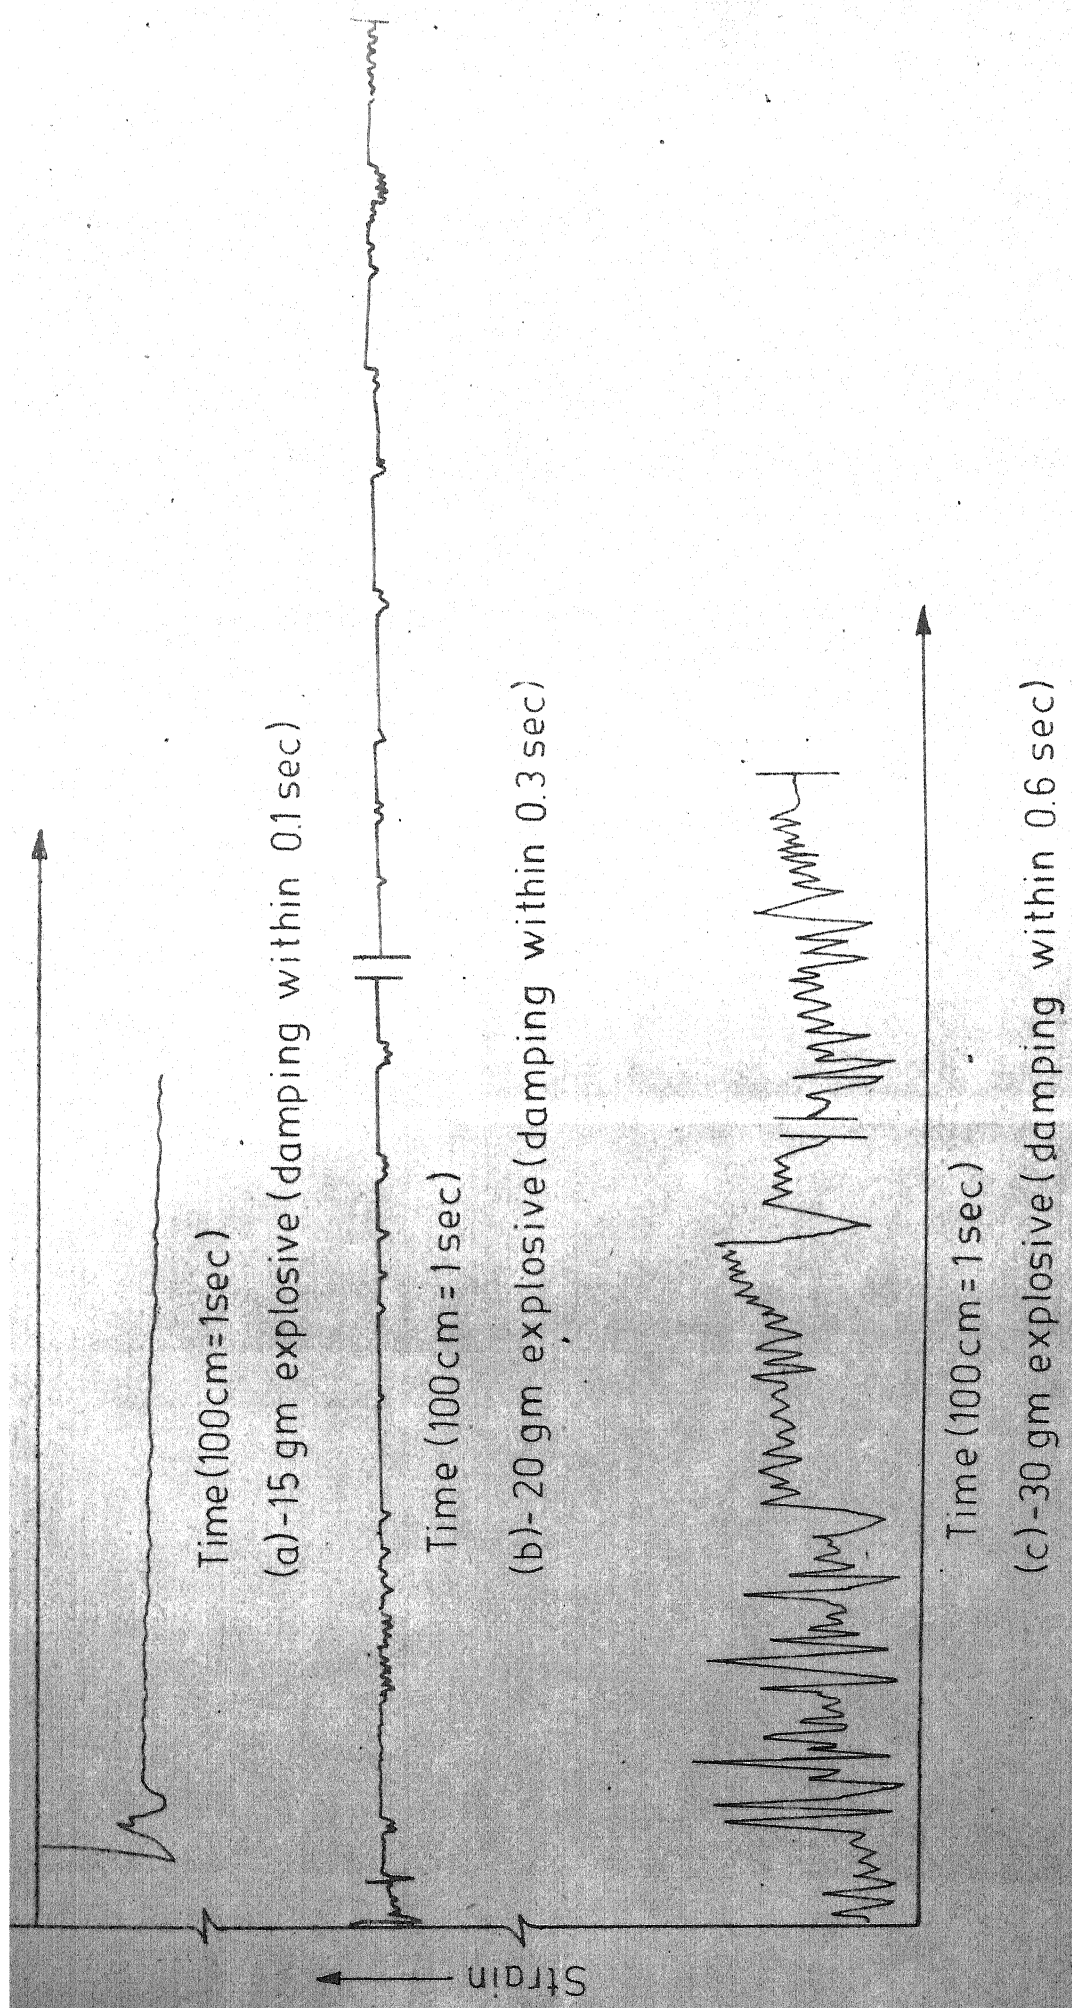 Time(100cm=1sec)
(a)-15 gm explosive(damping within 0.1 sec)
Time (100cm=1sec)
(b)-20 gm explosive(damping within 0.3 sec)
Time (100cm=1sec)
(c)-30 gm explosive(damping within 0.6 sec)
Strain